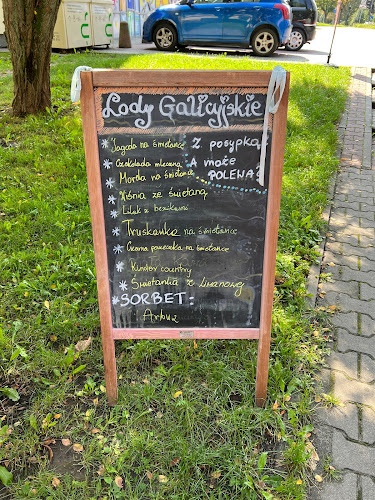 Lody Galicyjskie
* Jagoda na śmietance
* Czekolada mleczna
* Morela na śmietance
Z posypką
A może
POLEWA?
* Wiśnia ze śmietaną
* Lilak z bezikami
* Truskawka na śmietance
* Czarna porzeczka na śmietance
* Kinder country
* Śmietanka ze Limanowej
* SORBET:
Arbuz